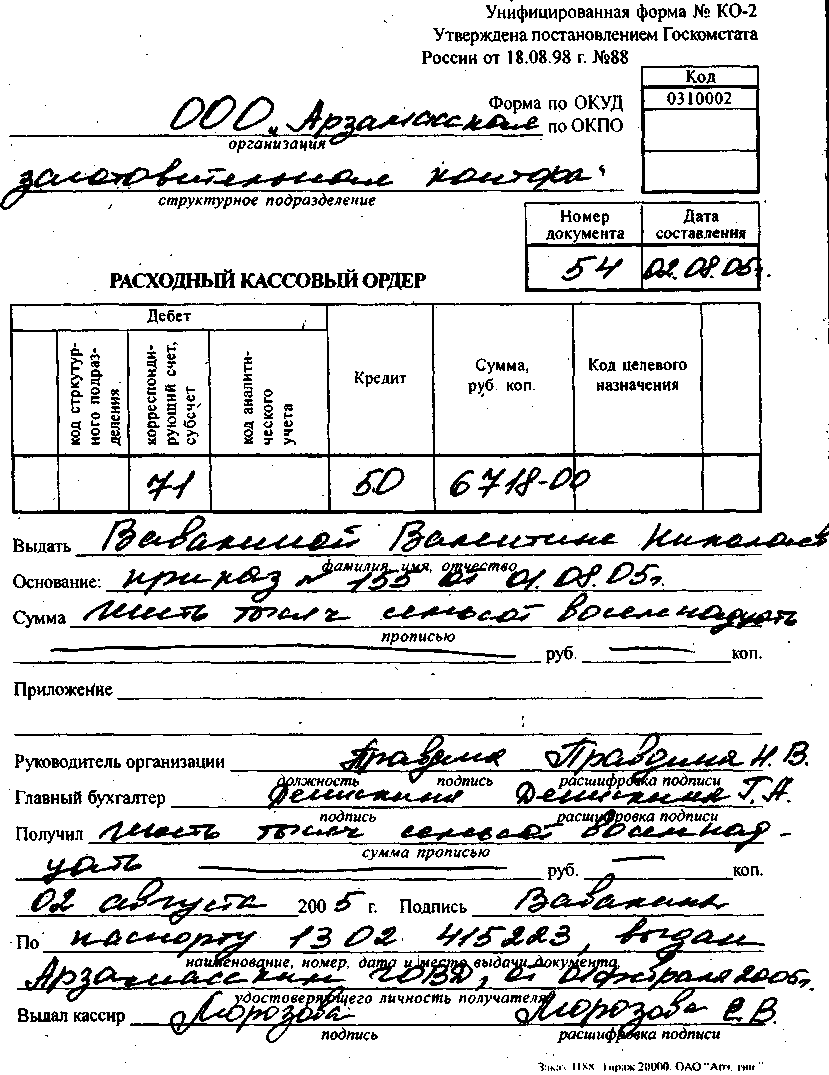 Унифицированная форма № КО-2
Утверждена постановлением Госкомстата
России от 18.08.98 г. №88
Код
Форма по ОКУД 0310002
ООО „Арзамасская по ОКПО
организация
заготовительная контора“
структурное подразделение
Номер документа Дата составления
54 02.08.05г.
РАСХОДНЫЙ КАССОВЫЙ ОРДЕР
Дебет
код стркутур-ного подраз-деления корреспонди-рующий счет, субсчет код аналити-ческого учета Кредит Сумма, руб. коп. Код целевого назначения
71 50 6718-00
Выдать Вавакиной Валентине Николаев
фамилия, имя, отчество
Основание: приказ № 155 от 01.08.05г.
Сумма Шесть тысяч семьсот восемнадцать
прописью
руб. коп.
Приложение
Руководитель организации Правдина Правдина Н.В.
должность подпись расшифровка подписи
Главный бухгалтер Демискина Демискина Г.А.
подпись расшифровка подписи
Получил Шесть тысяч семьсот восемнад-
сумма прописью
цать руб. коп.
02 августа 2005 г. Подпись Вавакина
По паспорту 13 02 415223, выдан
наименование, номер, дата и место выдачи документа,
Арзамасским ГОВД, от 01 февраля 2005г.
удостоверяющего личность получателя
Выдал кассир Морозова Морозова С.В.
подпись расшифровка подписи
Тираж 20000. ОАО